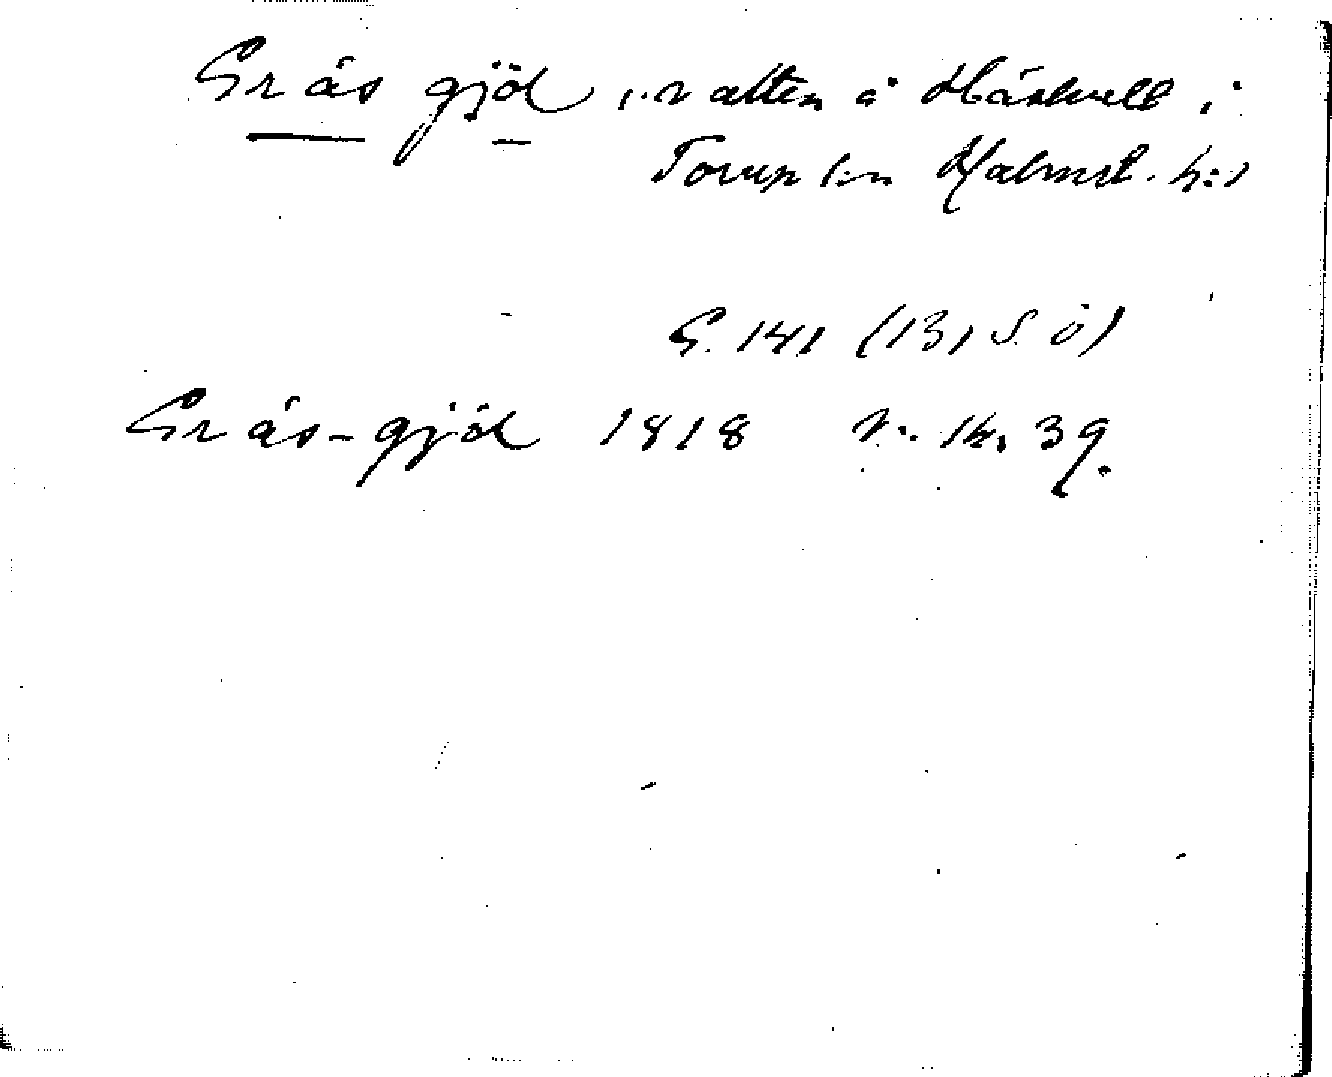 Grås gjöl, vatten å Håshult i
Torup sn Halmst. h:d
G. 141 (131 S. Ö)
Grås-gjöl 1818 No. 39.